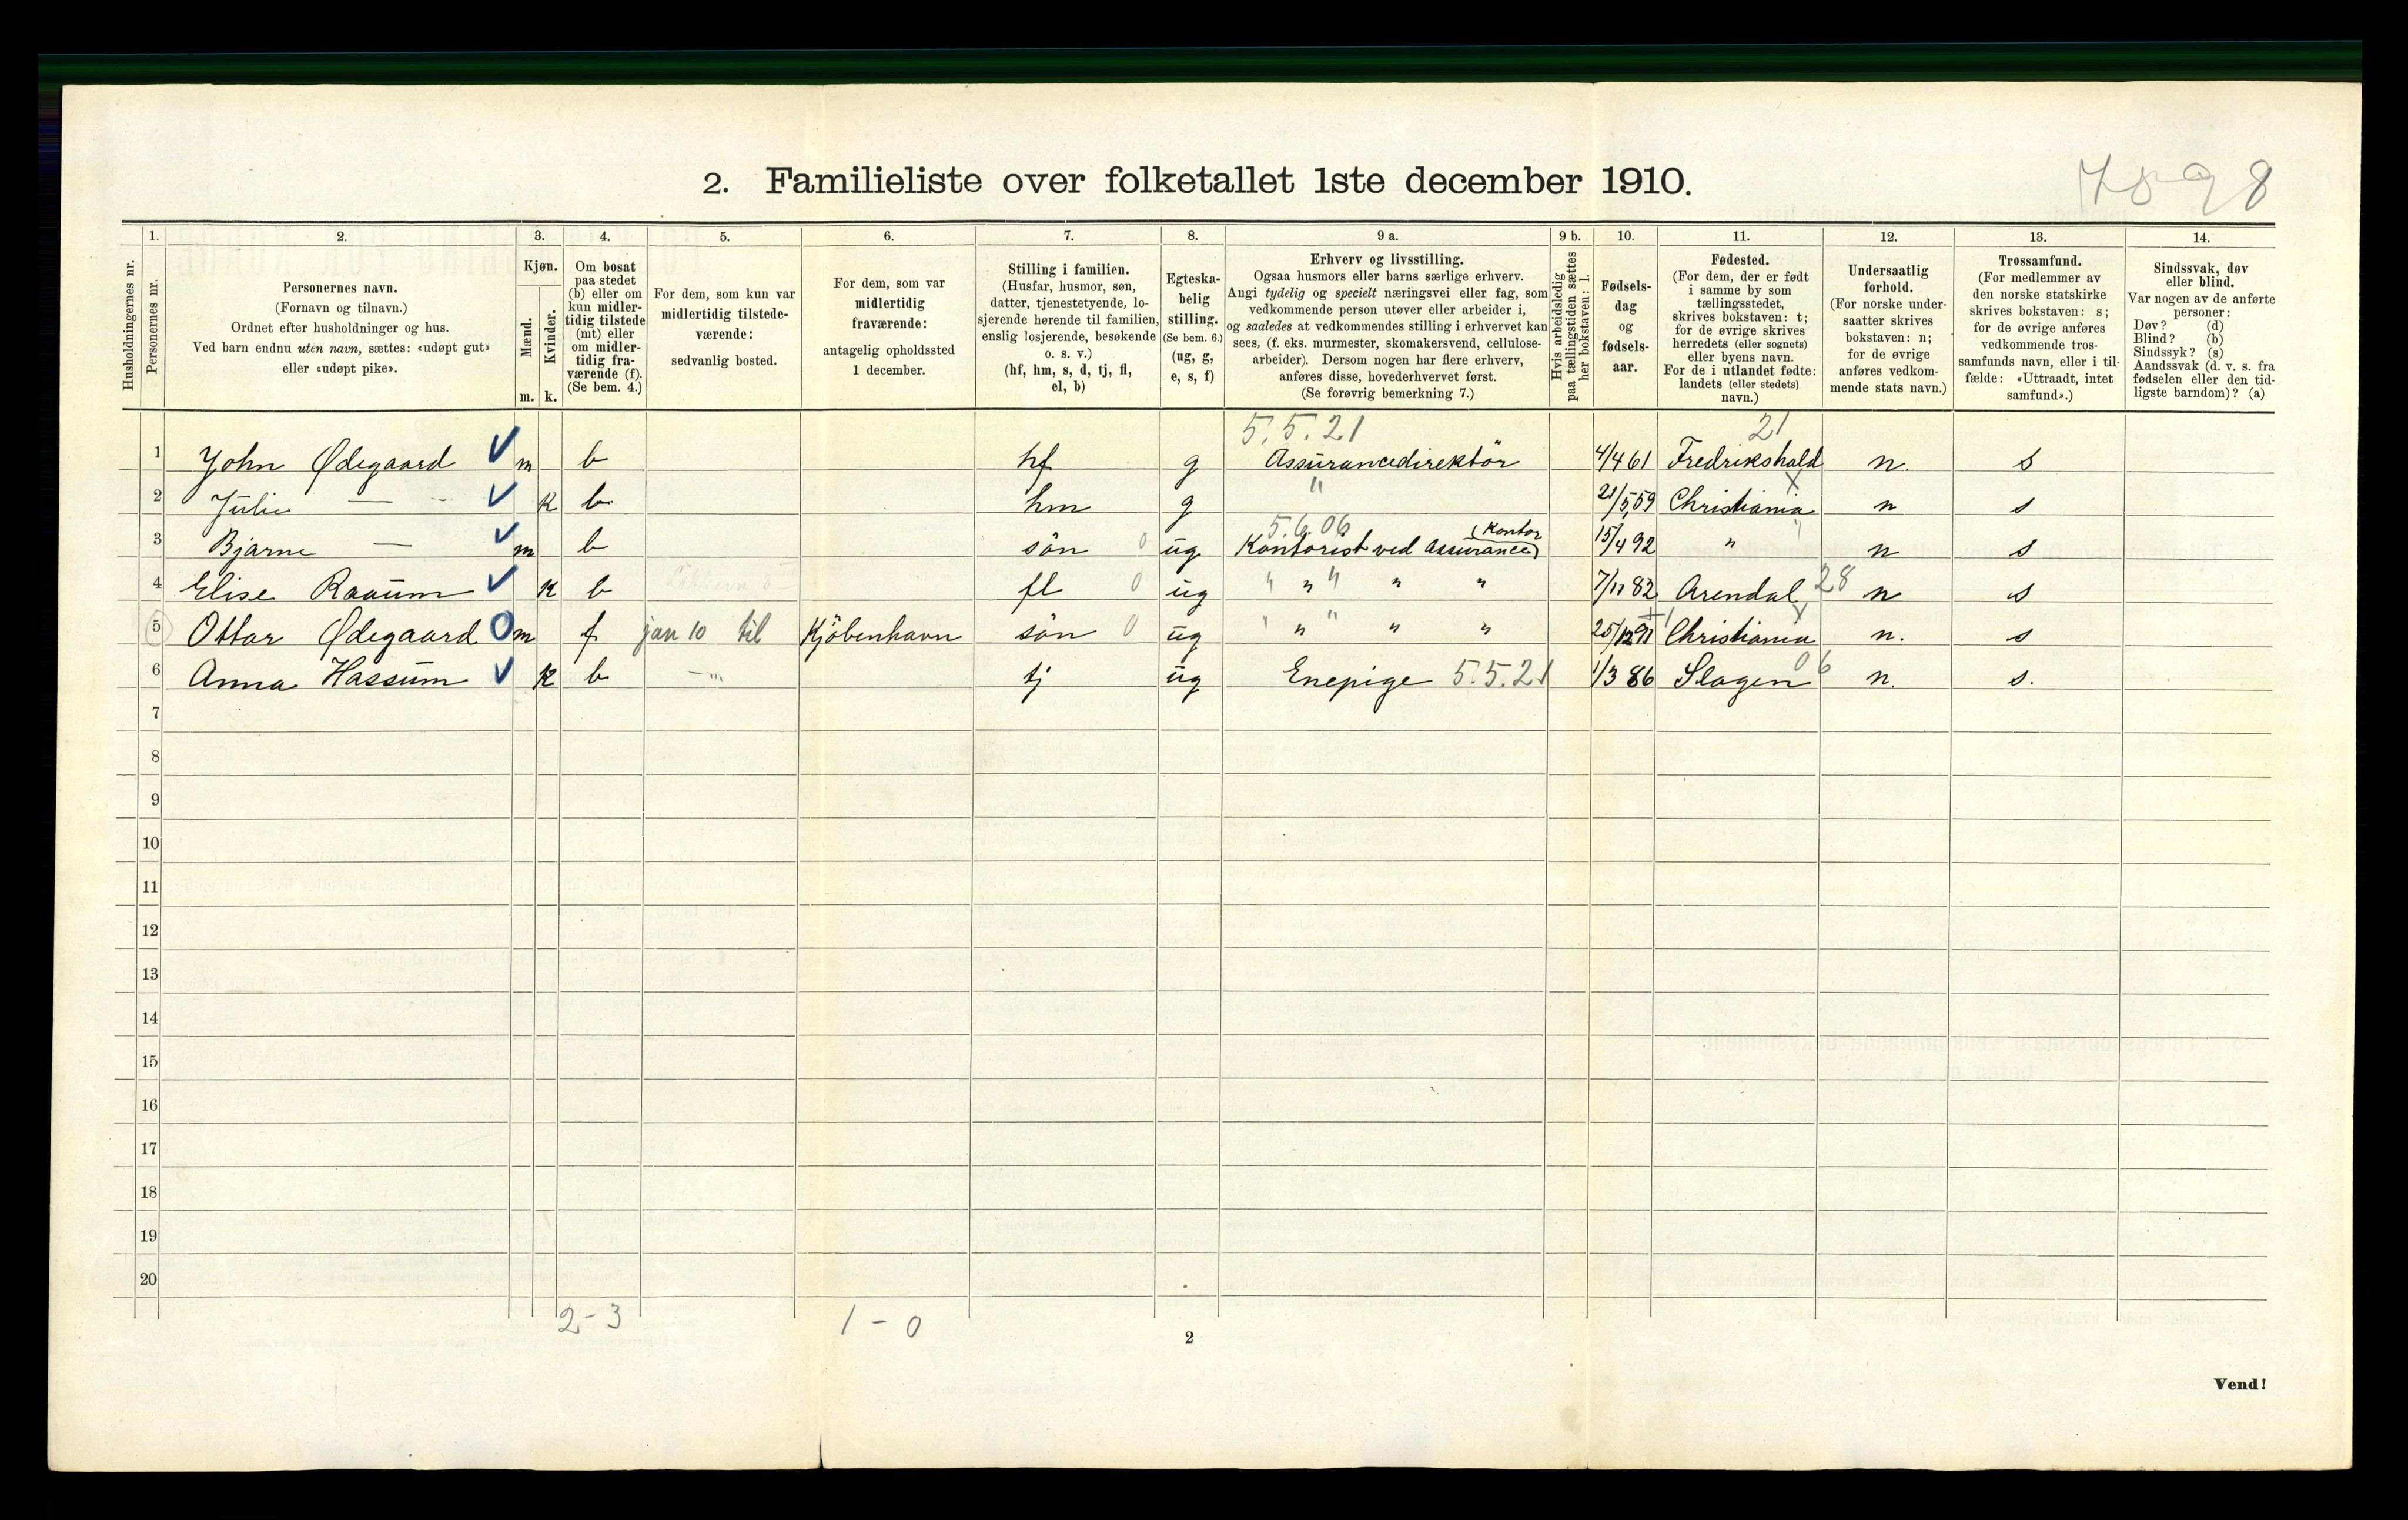 7898
2. Familieliste over folketallet 1ste december 1910.
Husholdningernes nr.
1. Personernes nr.
2. Personernes navn.
(Fornavn og tilnavn.)
Ordnet efter husholdninger og hus.
Ved barn endnu uten navn, sættes: «udøpt gut»
eller «udøpt pike».
3. Kjøn.
Mænd. m.
Kvinder. k.
4. Om bosat
paa stedet
(b) eller om
kun midler-
tidig tilstede
(mt) eller
om midler-
tidig fra-
værende (f).
(Se bem. 4.)
5. For dem, som kun var
midlertidig tilstede-
værende:
sedvanlig bosted.
6. For dem, som var
midlertidig
fraværende:
antagelig opholdssted
1 december.
7. Stilling i familien.
(Husfar, husmor, søn,
datter, tjenestetyende, lo-
sjerende hørende til familien,
enslig losjerende, besøkende
o. s. v.)
(hf, hm, s, d, tj, fl,
el, b)
8. Egteska-
belig
stilling.
(Se bem. 6.)
(ug, g,
e, s, f)
9 a. Erhverv og livsstilling.
Ogsaa husmors eller barns særlige erhverv.
Angi tydelig og specielt næringsvei eller fag, som
vedkommende person utøver eller arbeider i,
og saaledes at vedkommendes stilling i erhvervet kan
sees, (f. eks. murmester, skomakersvend, cellulose-
arbeider). Dersom nogen har flere erhverv,
anføres disse, hovederhvervet først.
(Se forøvrig bemerkning 7.)
9 b. Hvis arbeidsledig
paa tællingstiden sættes
her bokstaven: l.
10. Fødsels-
dag
og
fødsels-
aar.
11. Fødested.
(For dem, der er født
i samme by som
tællingsstedet,
skrives bokstaven: t;
for de øvrige skrives
herredets (eller sognets)
eller byens navn.
For de i utlandet fødte:
landets (eller stedets)
navn.)
12. Undersaatlig
forhold.
(For norske under-
saatter skrives
bokstaven: n;
for de øvrige
anføres vedkom-
mende stats navn.)
13. Trossamfund.
(For medlemmer av
den norske statskirke
skrives bokstaven: s;
for de øvrige anføres
vedkommende tros-
samfunds navn, eller i til-
fælde: «Uttraadt, intet
samfund».)
14. Sindssvak, døv
eller blind.
Var nogen av de anførte
personer:
Døv? (d)
Blind? (b)
Sindssyk? (s)
Aandssvak (d. v. s. fra
fødselen eller den tid-
ligste barndom)? (a)
5.5.21 21
1 John Ødegaard m b hf g Assurancedirektör 4/4 61 Fredrikshald n. s
2 Julie — k b hm g " 21/5 59 Christiania n s
5.6.06 (Kontor
3 Bjarne — m b sön 0 ug Kontorist ved Assurance) 15/4 92 " n s
4 Elise Raaum k b fl 0 ug " " " " 7/11 82 Arendal 28 n s
5 Ottar Ødegaard m f jan 10 til Kjöbenhavn sön 0 ug " " " " 25/12 91 Christiania n. s
6 Anna Hassum k b tj ug Enepige 5.5.21 1/3 86 Slagen 06 n. s.
7
8
9
10
11
12
13
14
15
16
17
18
19
20
2-3 1-0
2
Vend!